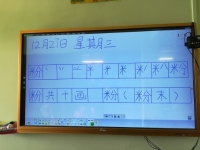 12月27日 星期三
粉 丶 丷 丷 半 米 米 米 米 粉
粉 共 十 画 粉 （ 粉 末 ）